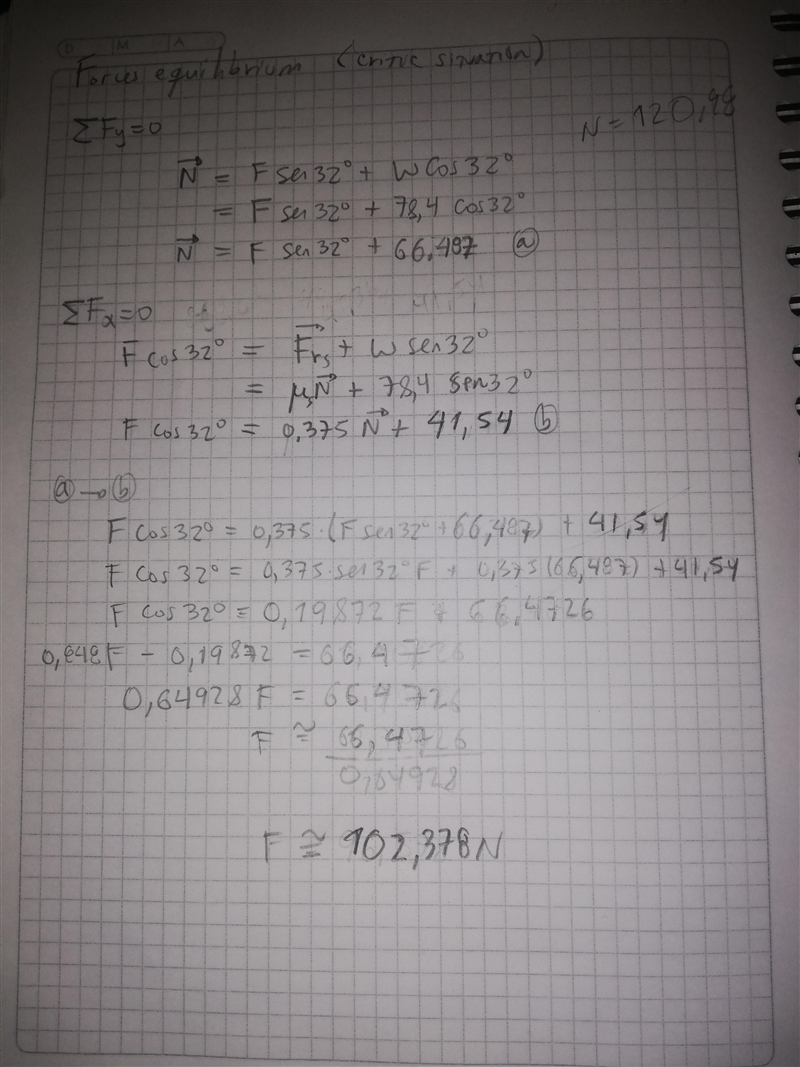 D M A
Forces equilibrium (critic situation)
ΣFy=0
N=120,98
N⃗ = F sen32° + W Cos32°
= F sen32° + 78,4 cos32°
N⃗ = F sen32° + 66,487 ⓐ
ΣFx=0
F cos32° = F⃗rs + W sen32°
= μsN⃗ + 78,4 Sen32°
F cos32° = 0,375 N⃗ + 41,54 ⓑ
ⓐ→ⓑ
F Cos32° = 0,375·(F sen32°+66,487) + 41,54
F cos32° = 0,375·sen32°F + 0,375(66,487) + 41,54
F cos32° = 0,19872 F + 66,4726
0,848F - 0,19872 = 66,4726
0,64928F = 66,4726
F ≅ 66,4726
0,64928
F ≅ 102,378N